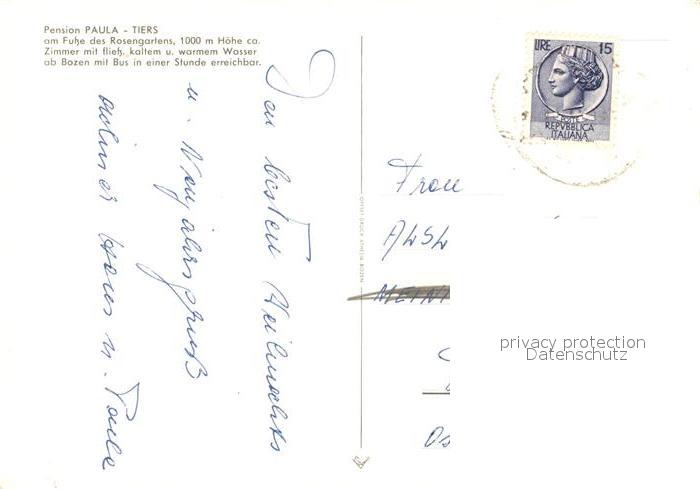 Pension PAULA - TIERS
am Fuße des Rosengartens, 1000 m Höhe ca.
Zimmer mit fließ. kaltem u. warmem Wasser
ab Bozen mit Bus in einer Stunde erreichbar.
LIRE 15
POSTE
REPVBBLICA
ITALIANA
besten Weihnachts
u. Neujahrsgruß
Hans u. Paula
OFFSET-DRUCK ATHESIA BOZEN
Frau
privacy protection
Datenschutz